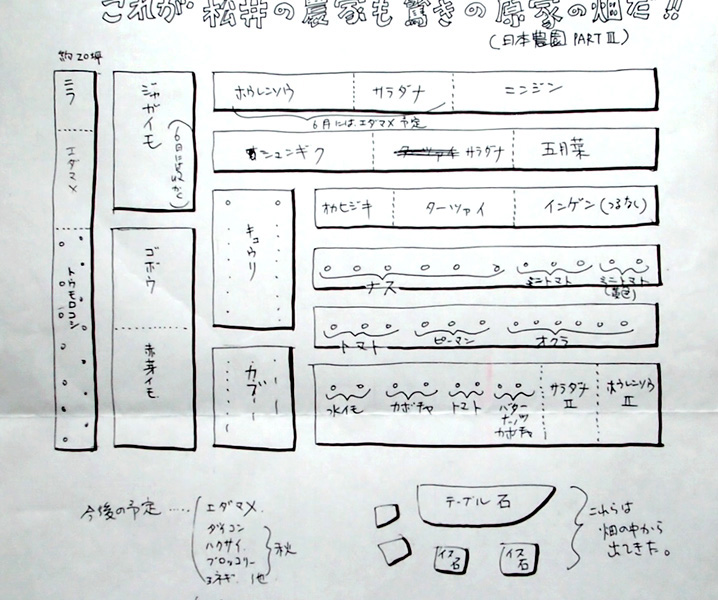 これが松井の農家も驚きの原家の畑だ!!
(日本農園 PART II)
約20坪
ニラ
エダマメ
トウモロコシ
ジャガイモ
ゴボウ
赤芽イモ
ホウレンソウ
サラダナ
ニンジン
6月にはエダマメ予定
シュンギク
サラダナ
五月菜
キュウリ
カブ
オカヒジキ
ターツァイ
インゲン(つるなし)
ナス
ミニトマト
ミニトマト
(黄色)
トマト
ピーマン
オクラ
水イモ
カボチャ
トマト
バター
ナッツ
カボチャ
サラダナ
II
ホウレンソウ
II
今後の予定……
エダマメ
ダイコン
ハクサイ
ブロッコリー
タネギ 他
秋
テーブル石
イス
石
イス
石
これらは
畑の中から
出てきた。